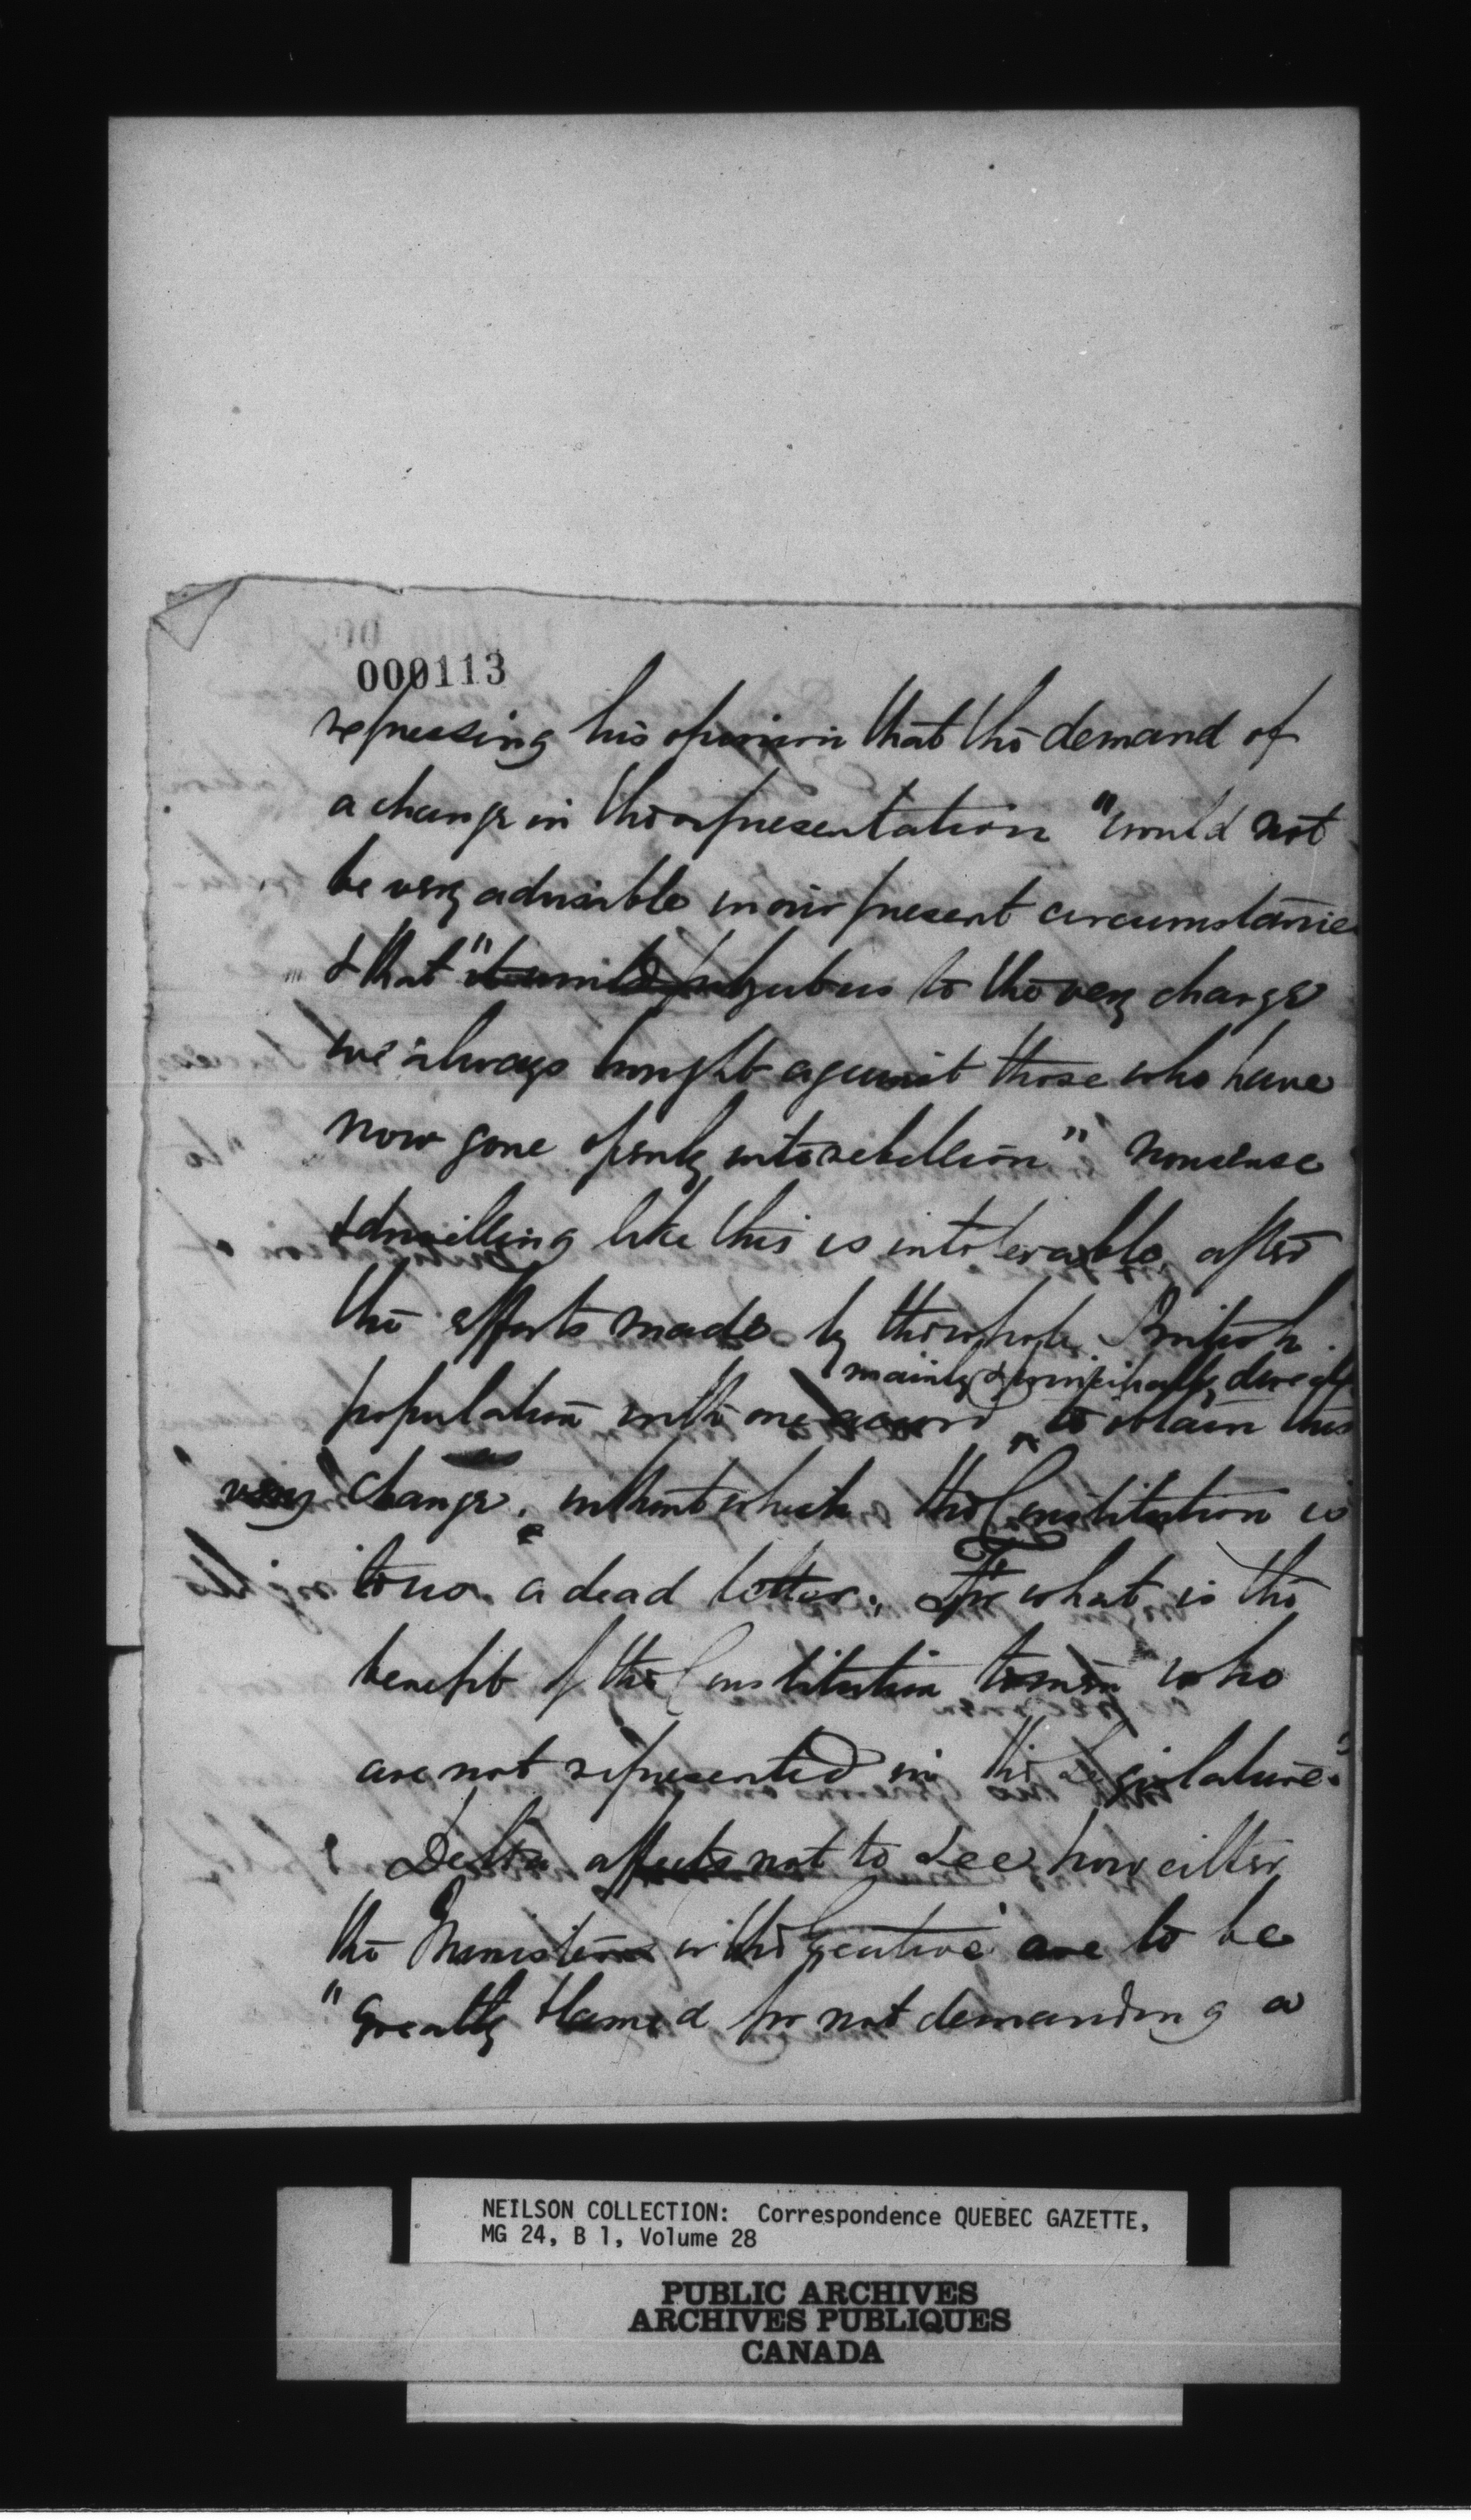 000113
expressing his opinion that the demand of
a change in the representation "would not
be very advisable in our present circumstance
& that "it would subject us to the very charge
we always brought against those who have
now gone openly into rebellion" nonsense
& drivelling like this is intolerable, after
the efforts made by the whole British
mainly & principally directed
population with one accord to obtain this
very change, without which the Constitution is
to us a dead letter. For what is the
benefit of the Constitution to men who
are not represented in the Legislature?
Delta affects not to see how either
the Ministers or the Executive are to be
"greatly blamed for not demanding a
NEILSON COLLECTION: Correspondence QUEBEC GAZETTE,
MG 24, B 1, Volume 28
PUBLIC ARCHIVES
ARCHIVES PUBLIQUES
CANADA